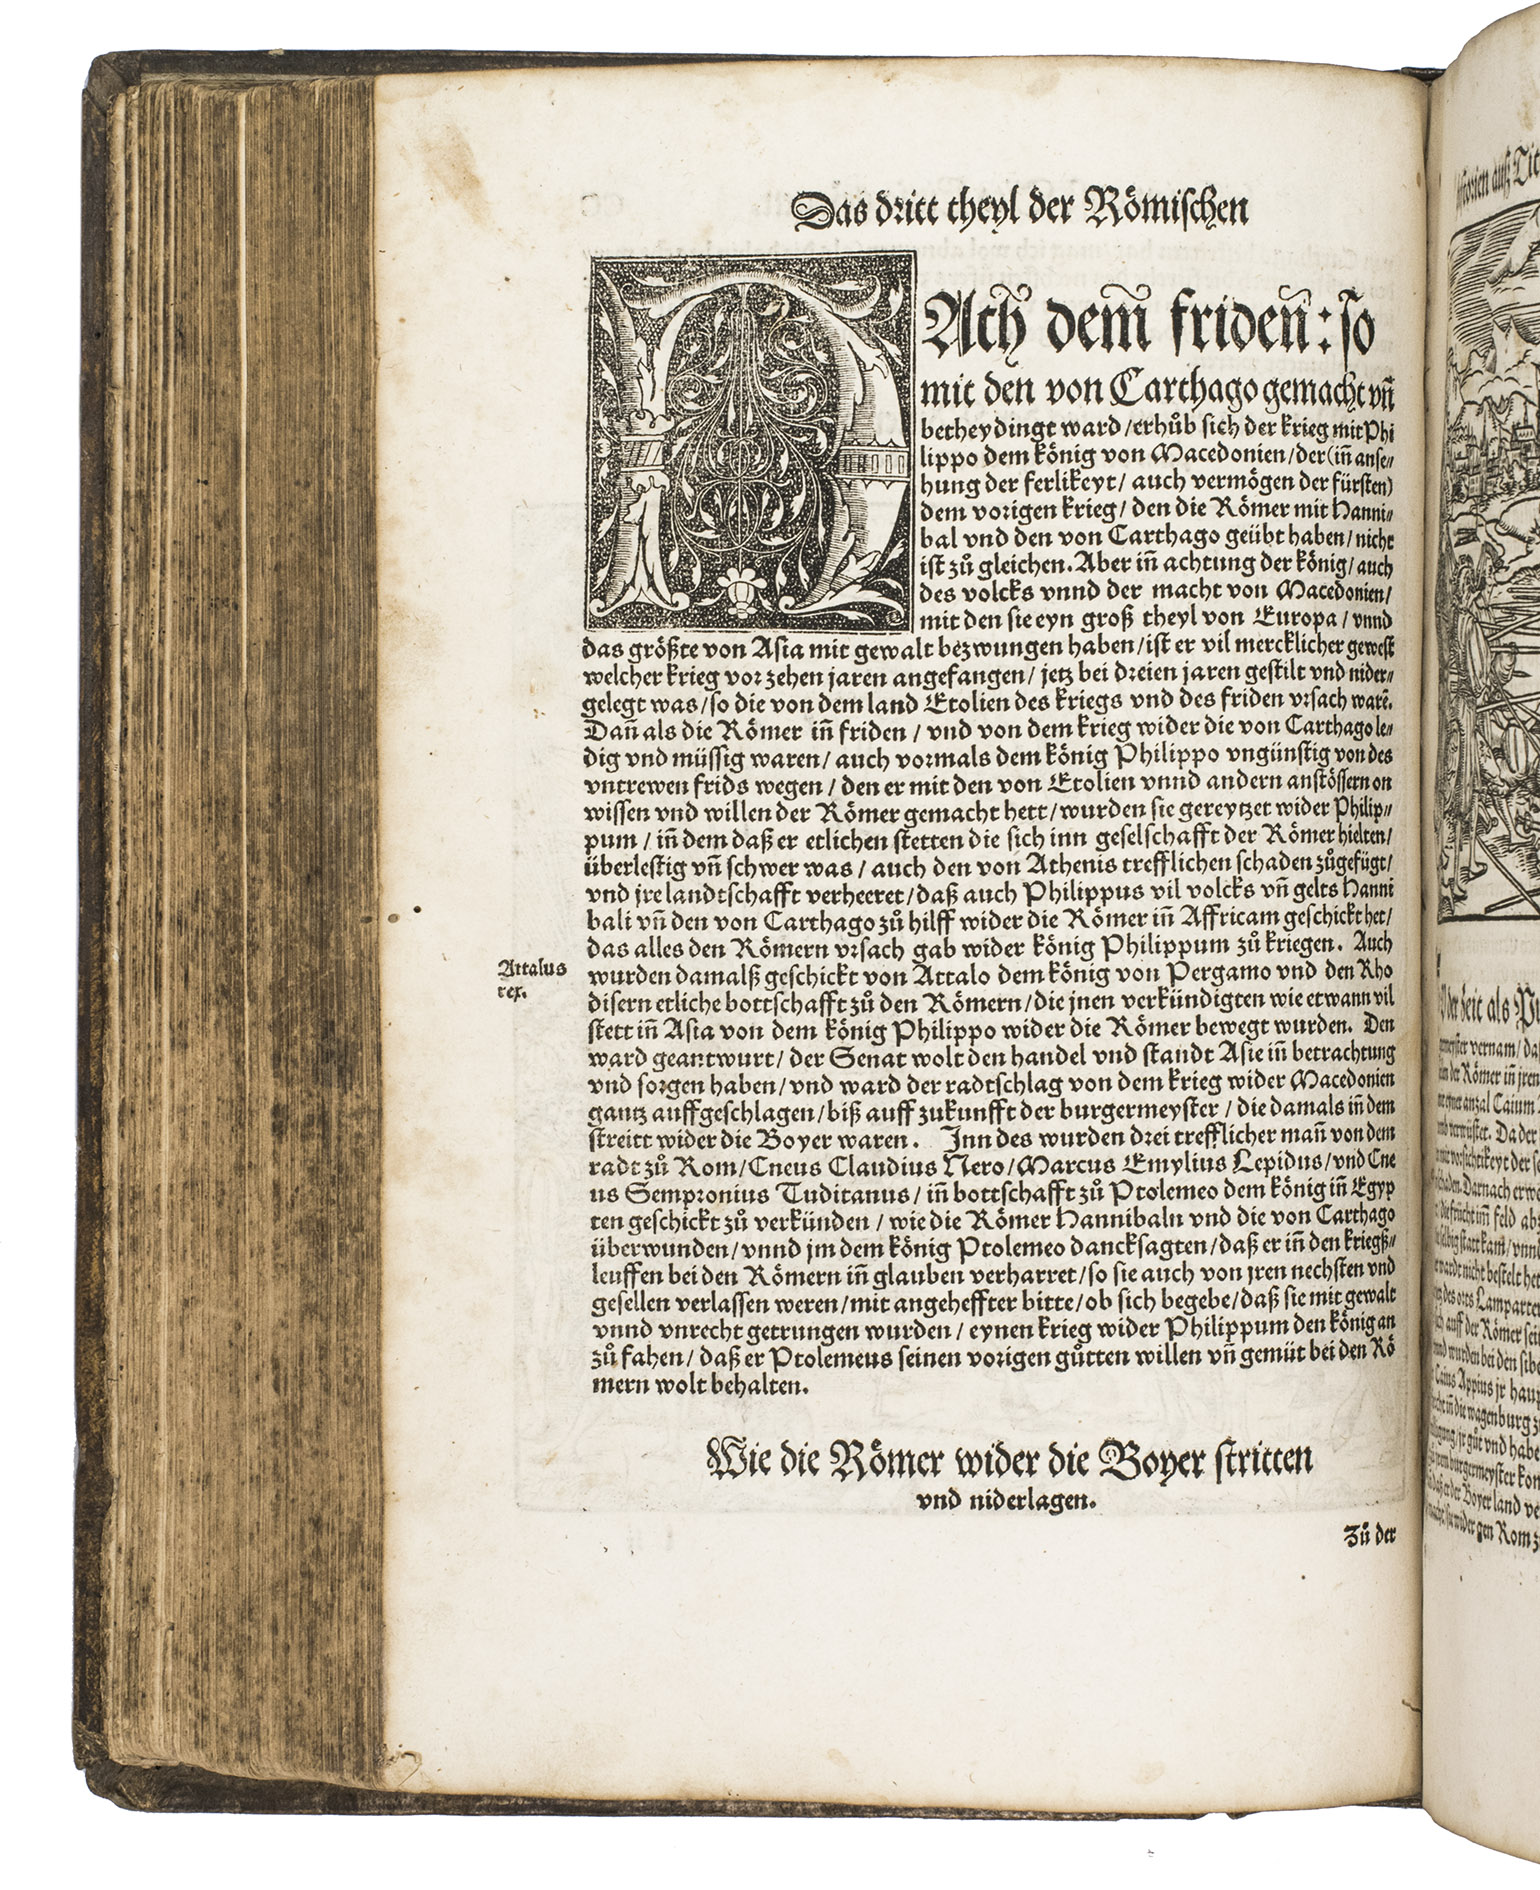 Das dritt theyl der Römischen
NAch dem̃ frideñ: so
mit den von Carthago gemacht vñ
betheydingt ward / erhůb sich der krieg mit Phi
lippo dem könig von Macedonien / der (iñ anse⸗
hung der ferlikeyt / auch vermögen der fürsten)
dem vorigen krieg / den die Römer mit Hanni⸗
bal vnd den von Carthago geübt haben / nicht
ist zů gleichen. Aber iñ achtung der könig / auch
des volcks vnnd der macht von Macedonien /
mit den sie eyn groß theyl von Europa / vnnd
das größte von Asia mit gewalt bezwungen haben / ist er vil mercklicher gewest
welcher krieg vor zehen jaren angefangen / jetz bei dreien jaren gestilt vnd nider⸗
gelegt was / so die von dem land Etolien des kriegs vnd des friden vrsach warẽ.
Dañ als die Römer iñ friden / vnd von dem krieg wider die von Carthago le⸗
dig vnd müssig waren / auch vormals dem könig Philippo vngünstig von des
vntrewen frids wegen / den er mit den von Etolien vnnd andern anstössern on
wissen vnd willen der Römer gemacht hett / wurden sie gereytzet wider Philip⸗
pum / iñ dem daß er etlichen stetten die sich inn geselschafft der Römer hielten /
überlestig vñ schwer was / auch den von Athenis trefflichen schaden zůgefügt /
vnd jre landtschafft verheeret / daß auch Philippus vil volcks vñ gelts Hanni
bali vñ den von Carthago zů hilff wider die Römer iñ Affricam geschickt het /
das alles den Römern vrsach gab wider könig Philippum zů kriegen. Auch
Attalus
rex.
wurden damalß geschickt von Attalo dem könig von Pergamo vnd den Rho
disern etliche bottschafft zů den Römern / die jnen verkündigten wie etwann vil
stett iñ Asia von dem könig Philippo wider die Römer bewegt wurden. Den
ward geantwurt / der Senat wolt den handel vnd standt Asie iñ betrachtung
vnd sorgen haben / vnd ward der radtschlag von dem krieg wider Macedonien
gantz auffgeschlagen / biß auff zukunfft der burgermeyster / die damals iñ dem
streitt wider die Boyer waren. Inn des wurden drei trefflicher mañ von dem
radt zů Rom / Cneus Claudius Nero / Marcus Emylius Lepidus / vnd Cne
us Sempronius Tuditanus / iñ bottschafft zů Ptolemeo dem könig iñ Egyp
ten geschickt zů verkünden / wie die Römer Hannibaln vnd die von Carthago
überwunden / vnnd jm dem könig Ptolemeo dancksagten / daß er iñ den kriegß⸗
leuffen bei den Römern iñ glauben verharret / so sie auch von jren nechsten vnd
gesellen verlassen weren / mit angeheffter bitte / ob sich begebe / daß sie mit gewalt
vnnd vnrecht getrungen wurden / eynen krieg wider Philippum den könig an
zů fahen / daß er Ptolemeus seinen vorigen gůtten willen vñ gemüt bei den Rö
mern wolt behalten.
Wie die Römer wider die Boyer stritten
vnd niderlagen.
Zů der